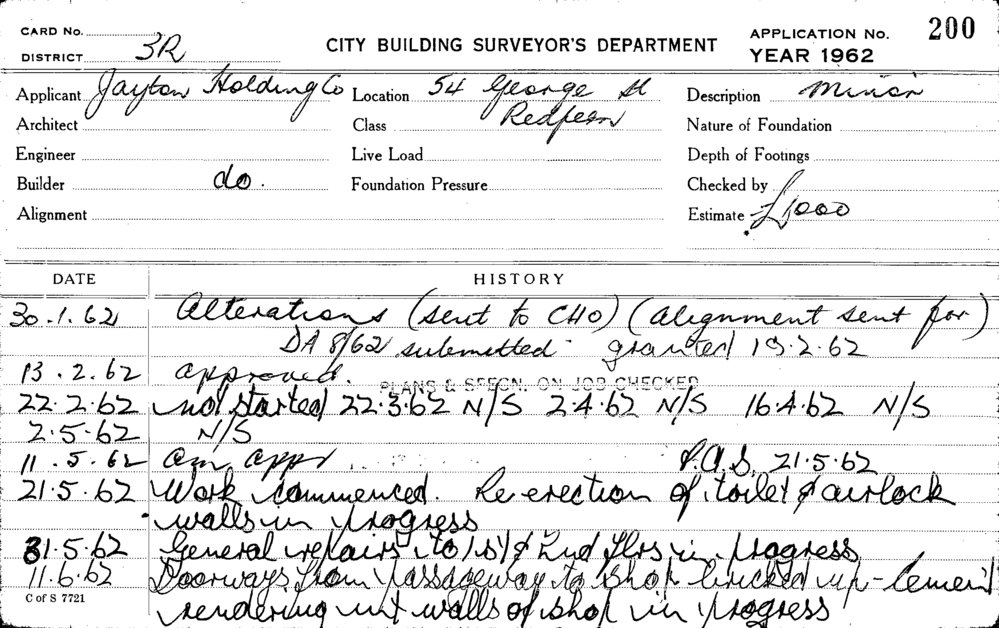 CARD No. CITY BUILDING SURVEYOR'S DEPARTMENT APPLICATION No. 200
DISTRICT 3R YEAR 1962
Applicant Jayton Holding Co Location 54 George St Description Minor
Architect Class Redfern Nature of Foundation
Engineer Live Load Depth of Footings
Builder do. Foundation Pressure Checked by
Alignment Estimate £1000
DATE HISTORY
30.1.62 Alterations (sent to CHO) (alignment sent for)
DA 8/62 submitted granted 19.2.62
13.2.62 approved. PLANS & SPECN. ON JOB CHECKED
22.2.62 not started 22.3.62 N/S 2.4.62 N/S 16.4.62 N/S
2.5.62 N/S
11.5.62 am. appr P.A.S. 21.5.62
21.5.62 Work commenced. Re-erection of toilet & airlock
walls in progress
31.5.62 General repairs to 1st & 2nd flrs in progress
11.6.62 Doorways from passageway to shop bricked up - Cement
rendering int walls of shop in progress
C of S 7721